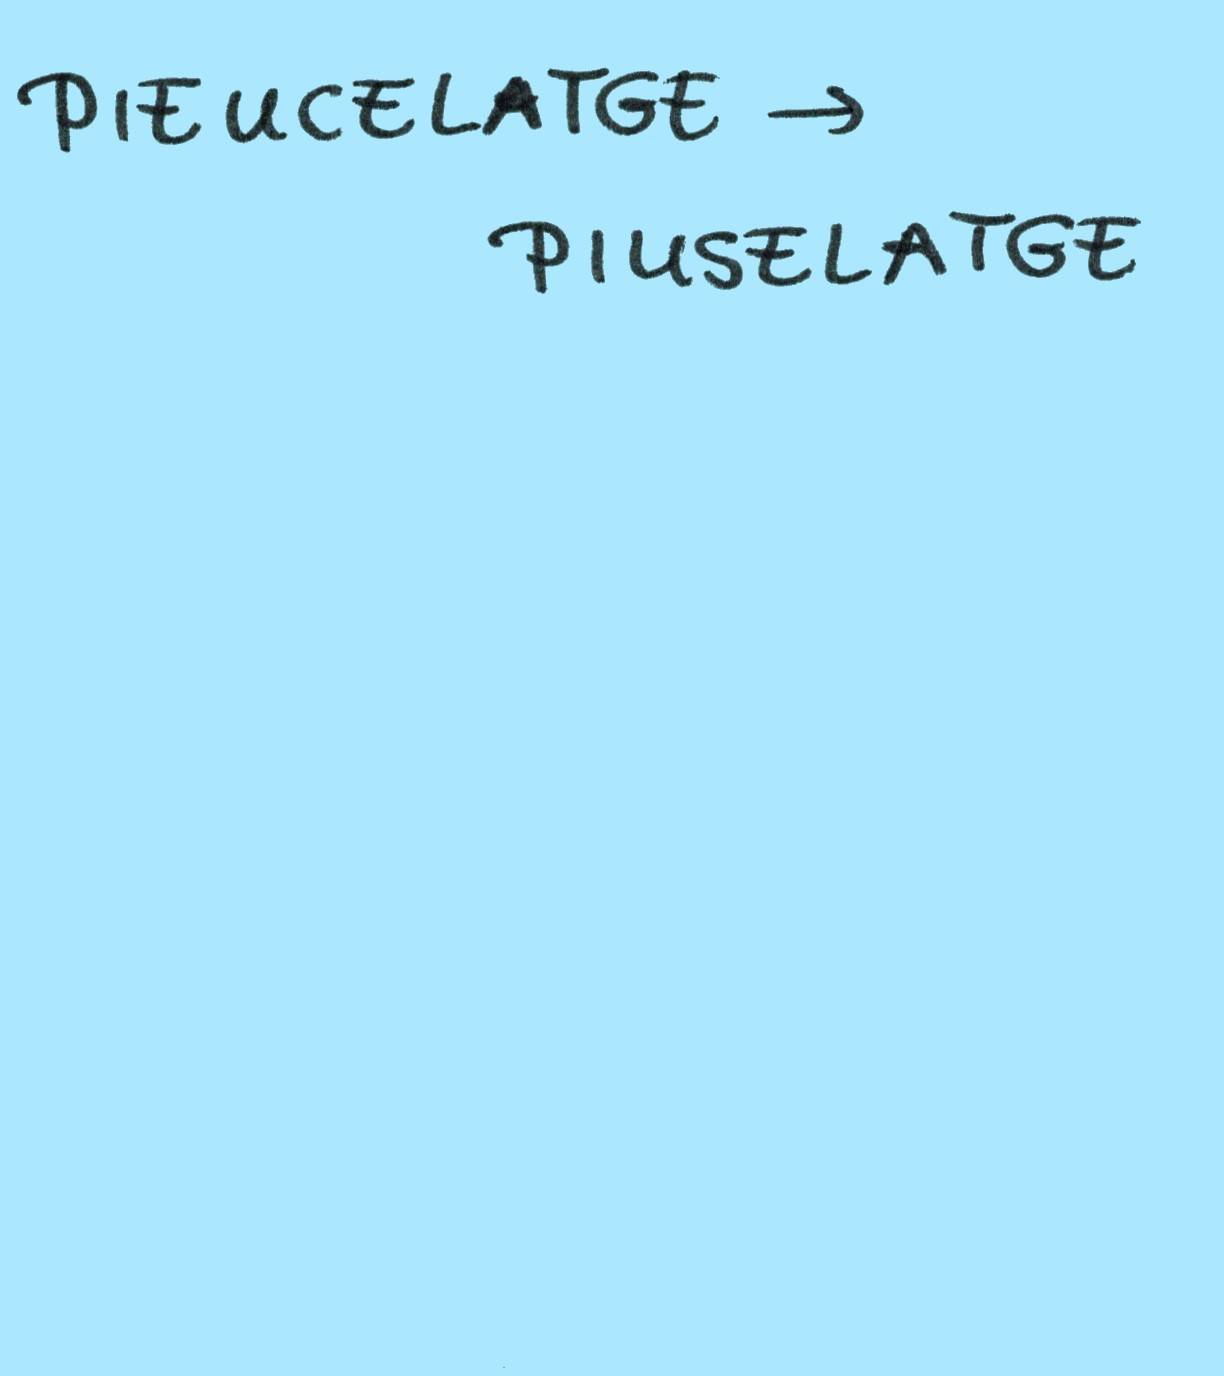 PIEUCELATGE →
PIUSELATGE